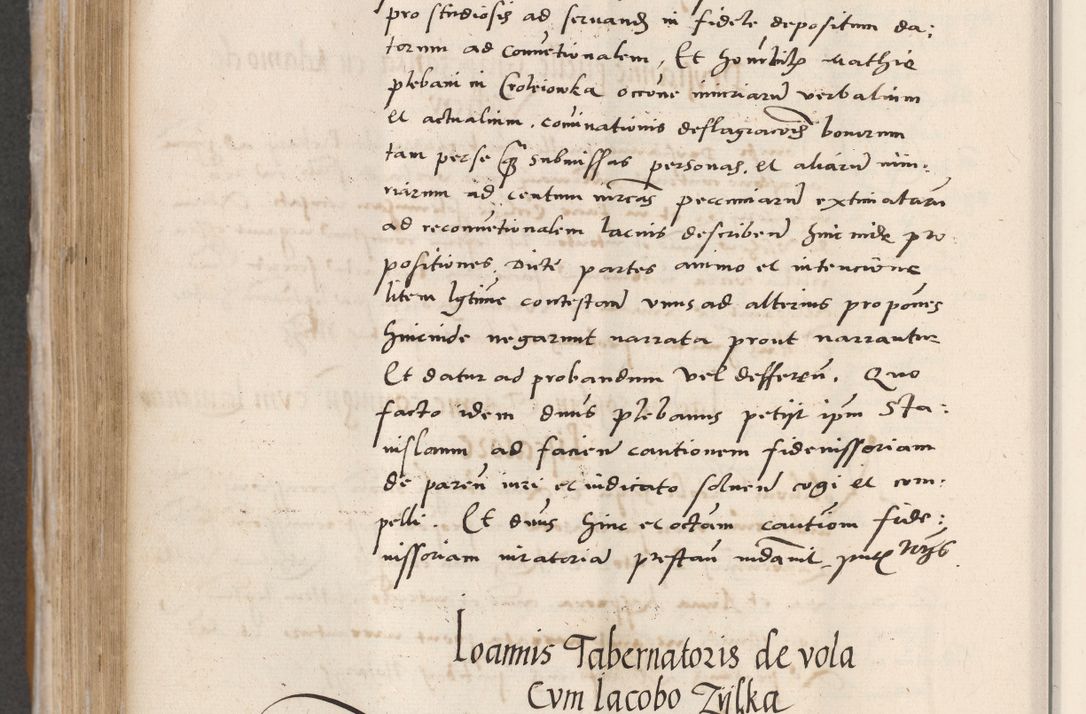 pro studiosis ad servand in fidele depositum da:
torum ad conventionalem, Et honrbilis Mathie
plebani in Croleiowka occone iniuriarum verbalium
et actualium, cominationis deflagracois bonorum
tam per se quam submissas personas, et aliarum iniu:
riarum ad centum mrcas peccuniarum extimatarum
ad reconventionalem lacius describen hinc inde pro
positiones, Dicte partes animo et intencione
litem lgtime contestan unius ad alterius propones
hincinde negarunt narrata prout narrantur
Et datur ad probandum vel defferen. Quo
facto idem dnus plebanus petiit ipm Sta:
nislaum ad facien cautionem fideiussoriam
de paren iuri et iudicato solven cogi et com:
pelli. Et dnus hinc et octam cautiom fide:
iussoriam iuratoria prestan mdavit pntibus
Ioannis Tabernatoris de vola
Cvm Iacobo Zylka